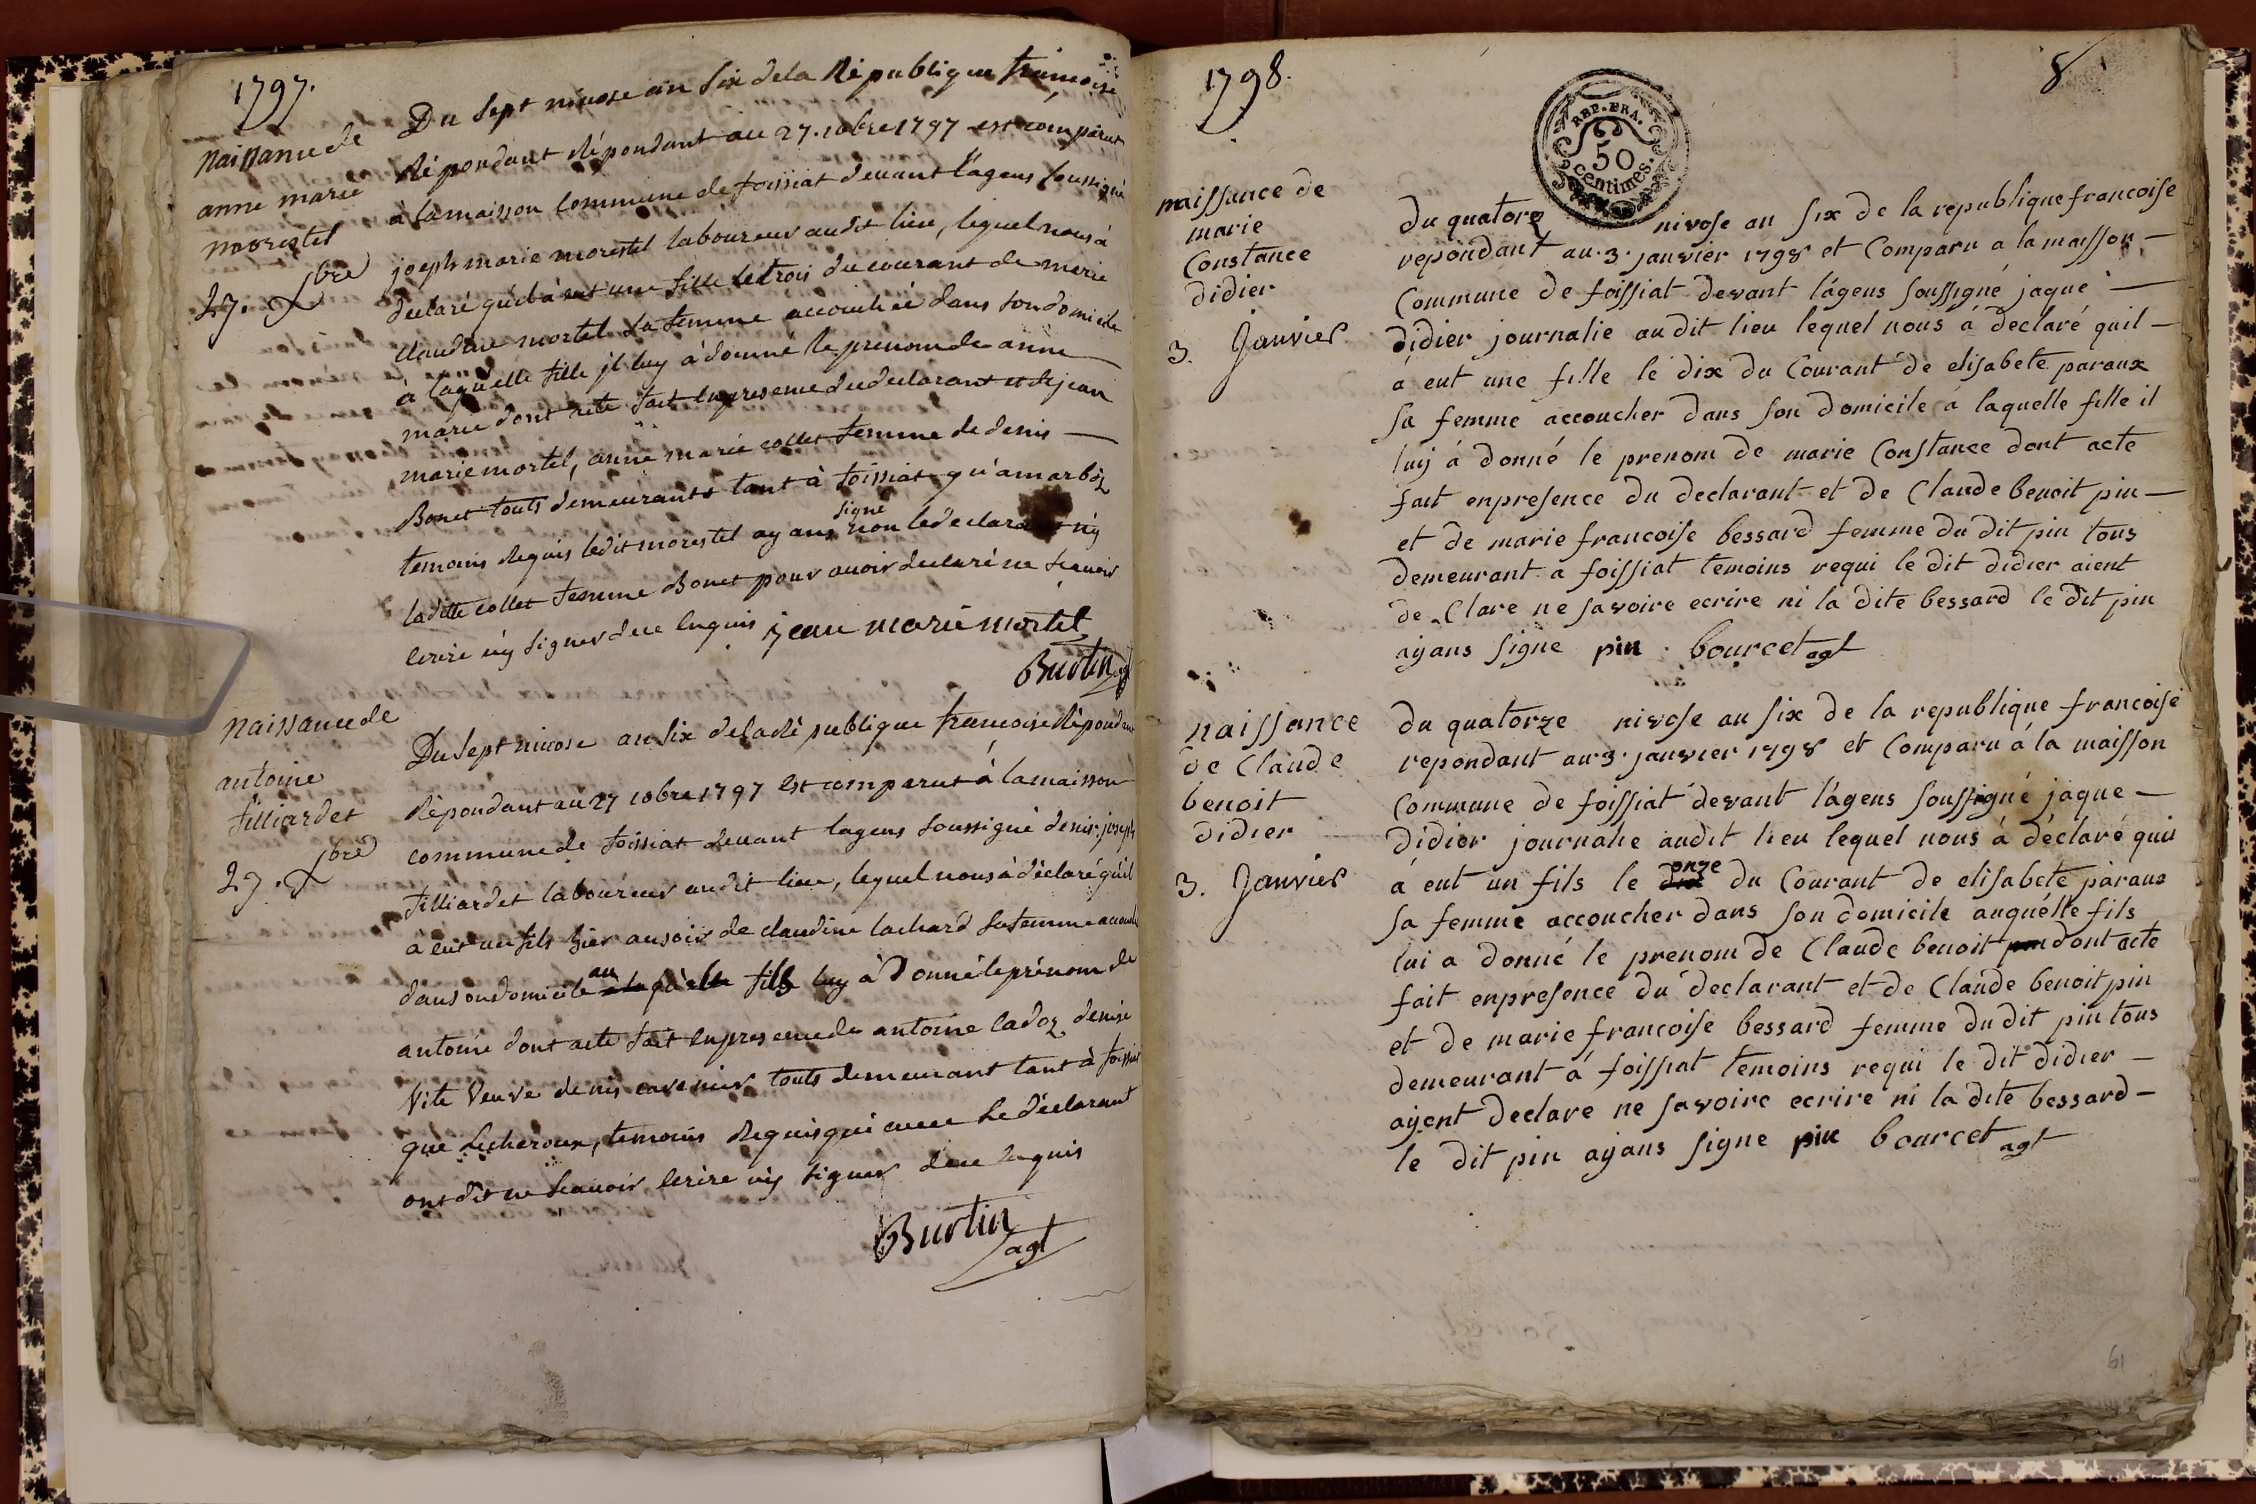 1797.
Naissance de
anne marie
morestel
27. xbre
Du Sept nivose an Six dela République françoise
Répondant Répondant au 27. 10bre 1797 est comparut
a lamaison Commune de foissiat devant l'agens soussigné
joseph marie morestel laboureur audit lieu, lequel nous à
declaré qu'el à eut une fille le trois du courant de marie
Claudine mortel sa femme accouchée dans son domicile
à laquelle fille jl luy à donné le prenom de anne
marie dont acte fait en presence du declarant et de jean
marie mortel, anne marie collet femme de denis —
Bonet touts demeurants tant à foissiat qu'a marboz
signé
temoins Requis ledit morestel ayans non le declarant n'y
laditte collet femme Bonet pour avoir declaré ne sçavoir
ecrire n'y signer de ce enquis jean marie mortel
Burtin agt
Naissance de
antoine
filliardet
27. xbre
Du Sept nivose an Six dela République francoise Répondant
Répondant au 27 10bre 1797 Est comparut à lamaison
commune de foissiat devant lagens soussigné denis joseph
filliardet laboureur audit lieu, lequel nous à déclaré qu'il
a eut un fils hier au soir de claudine lachard sa femme accouché
au
dans son domicile a la quelle fils luy à Donné le prénom de
antoine dont acte fait en presence de antoine cadoz denise
Vite Veuve denis cavenier touts demeurant tant à foissiat
que Lecheroux, temoins Requis qui avec Le déclarant
ont dit ne scavoir ecrire n'y signer de ce enquis
Burtin
agt
1798.
8
REP. FRA.
50
centimes.
naissance de
marie
Constance
didier
3. Janvier
du quatorz nivose an six de la republique francoise
repondant au 3. janvier 1798 et Comparu a la maisson —
Commune de foissiat devant l'agens soussigné jaque —
didier journalie au dit lieu lequel nous á declaré quil —
á eut une fille le dix du Courant de elisabete paraux
sa femme accoucher dans son domicile á laquelle fille il
luy á donné le prenom de marie Constance dont acte
fait enpresence du declarant et de Claude benoit pin —
et de marie francoise bessard femme du dit pin tous
demeurant a foissiat temoins requi le dit didier aient
de Clare ne savoire ecrire ni la dite bessard le dit pin
ayans signe pin . bourcet agt
naissance
de Claude
benoit
didier
3. Janvier
du quatorze nivose an six de la republique francoise
repondant au 3. janvier 1798 et Comparu á la maisson
Commune de foissiat devant l'agens soussigné jaque —
didier journalie audit lieu lequel nous à déclaré quil
onze
á eut un fils le dix du Courant de elisabete páraux
sa femme accoucher dans son domicile auquélle fils
lui a donné le prenom de Claude benoit dont acte
fait enpresence du declarant et de Claude benoit pin
et de marie francoise bessard femme du dit pin tous
demeurant á foissiat temoins requi le dit didier —
ayent declare ne savoire ecrire ni la dite bessard —
le dit pin ayans signe pin bourcet agt
61